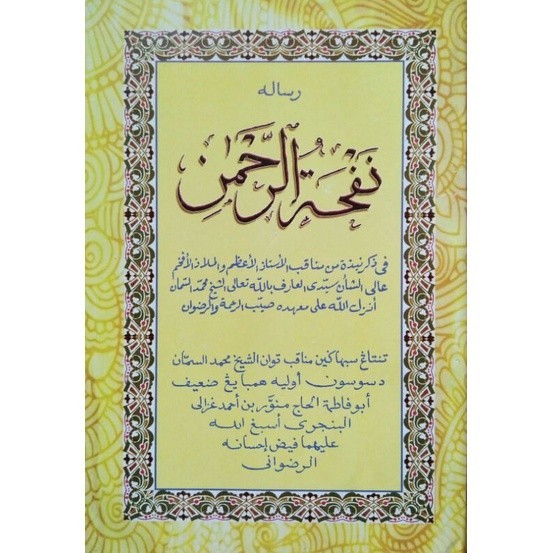 رساله
نَفْحَةُ الرَّحْمٰن
في ذكر نبذة من مناقب الأستاذ الأعظم والملاذ الأفخم
عالي الشأن سيدى العارف بالله تعالى الشيخ محمد السمان
أنزل الله على معهده صيّب الرحمة والرضوان
تنتاڠ سبهاكين مناقب توان الشيخ محمد السمّان
دسوسون أوليه همبا يڠ ضعيف
أبو فاطمة الحاج منوّر بن أحمد غزالى
البنجرى أسبغ الله
عليهما فيض إحسانه
الرضوانى